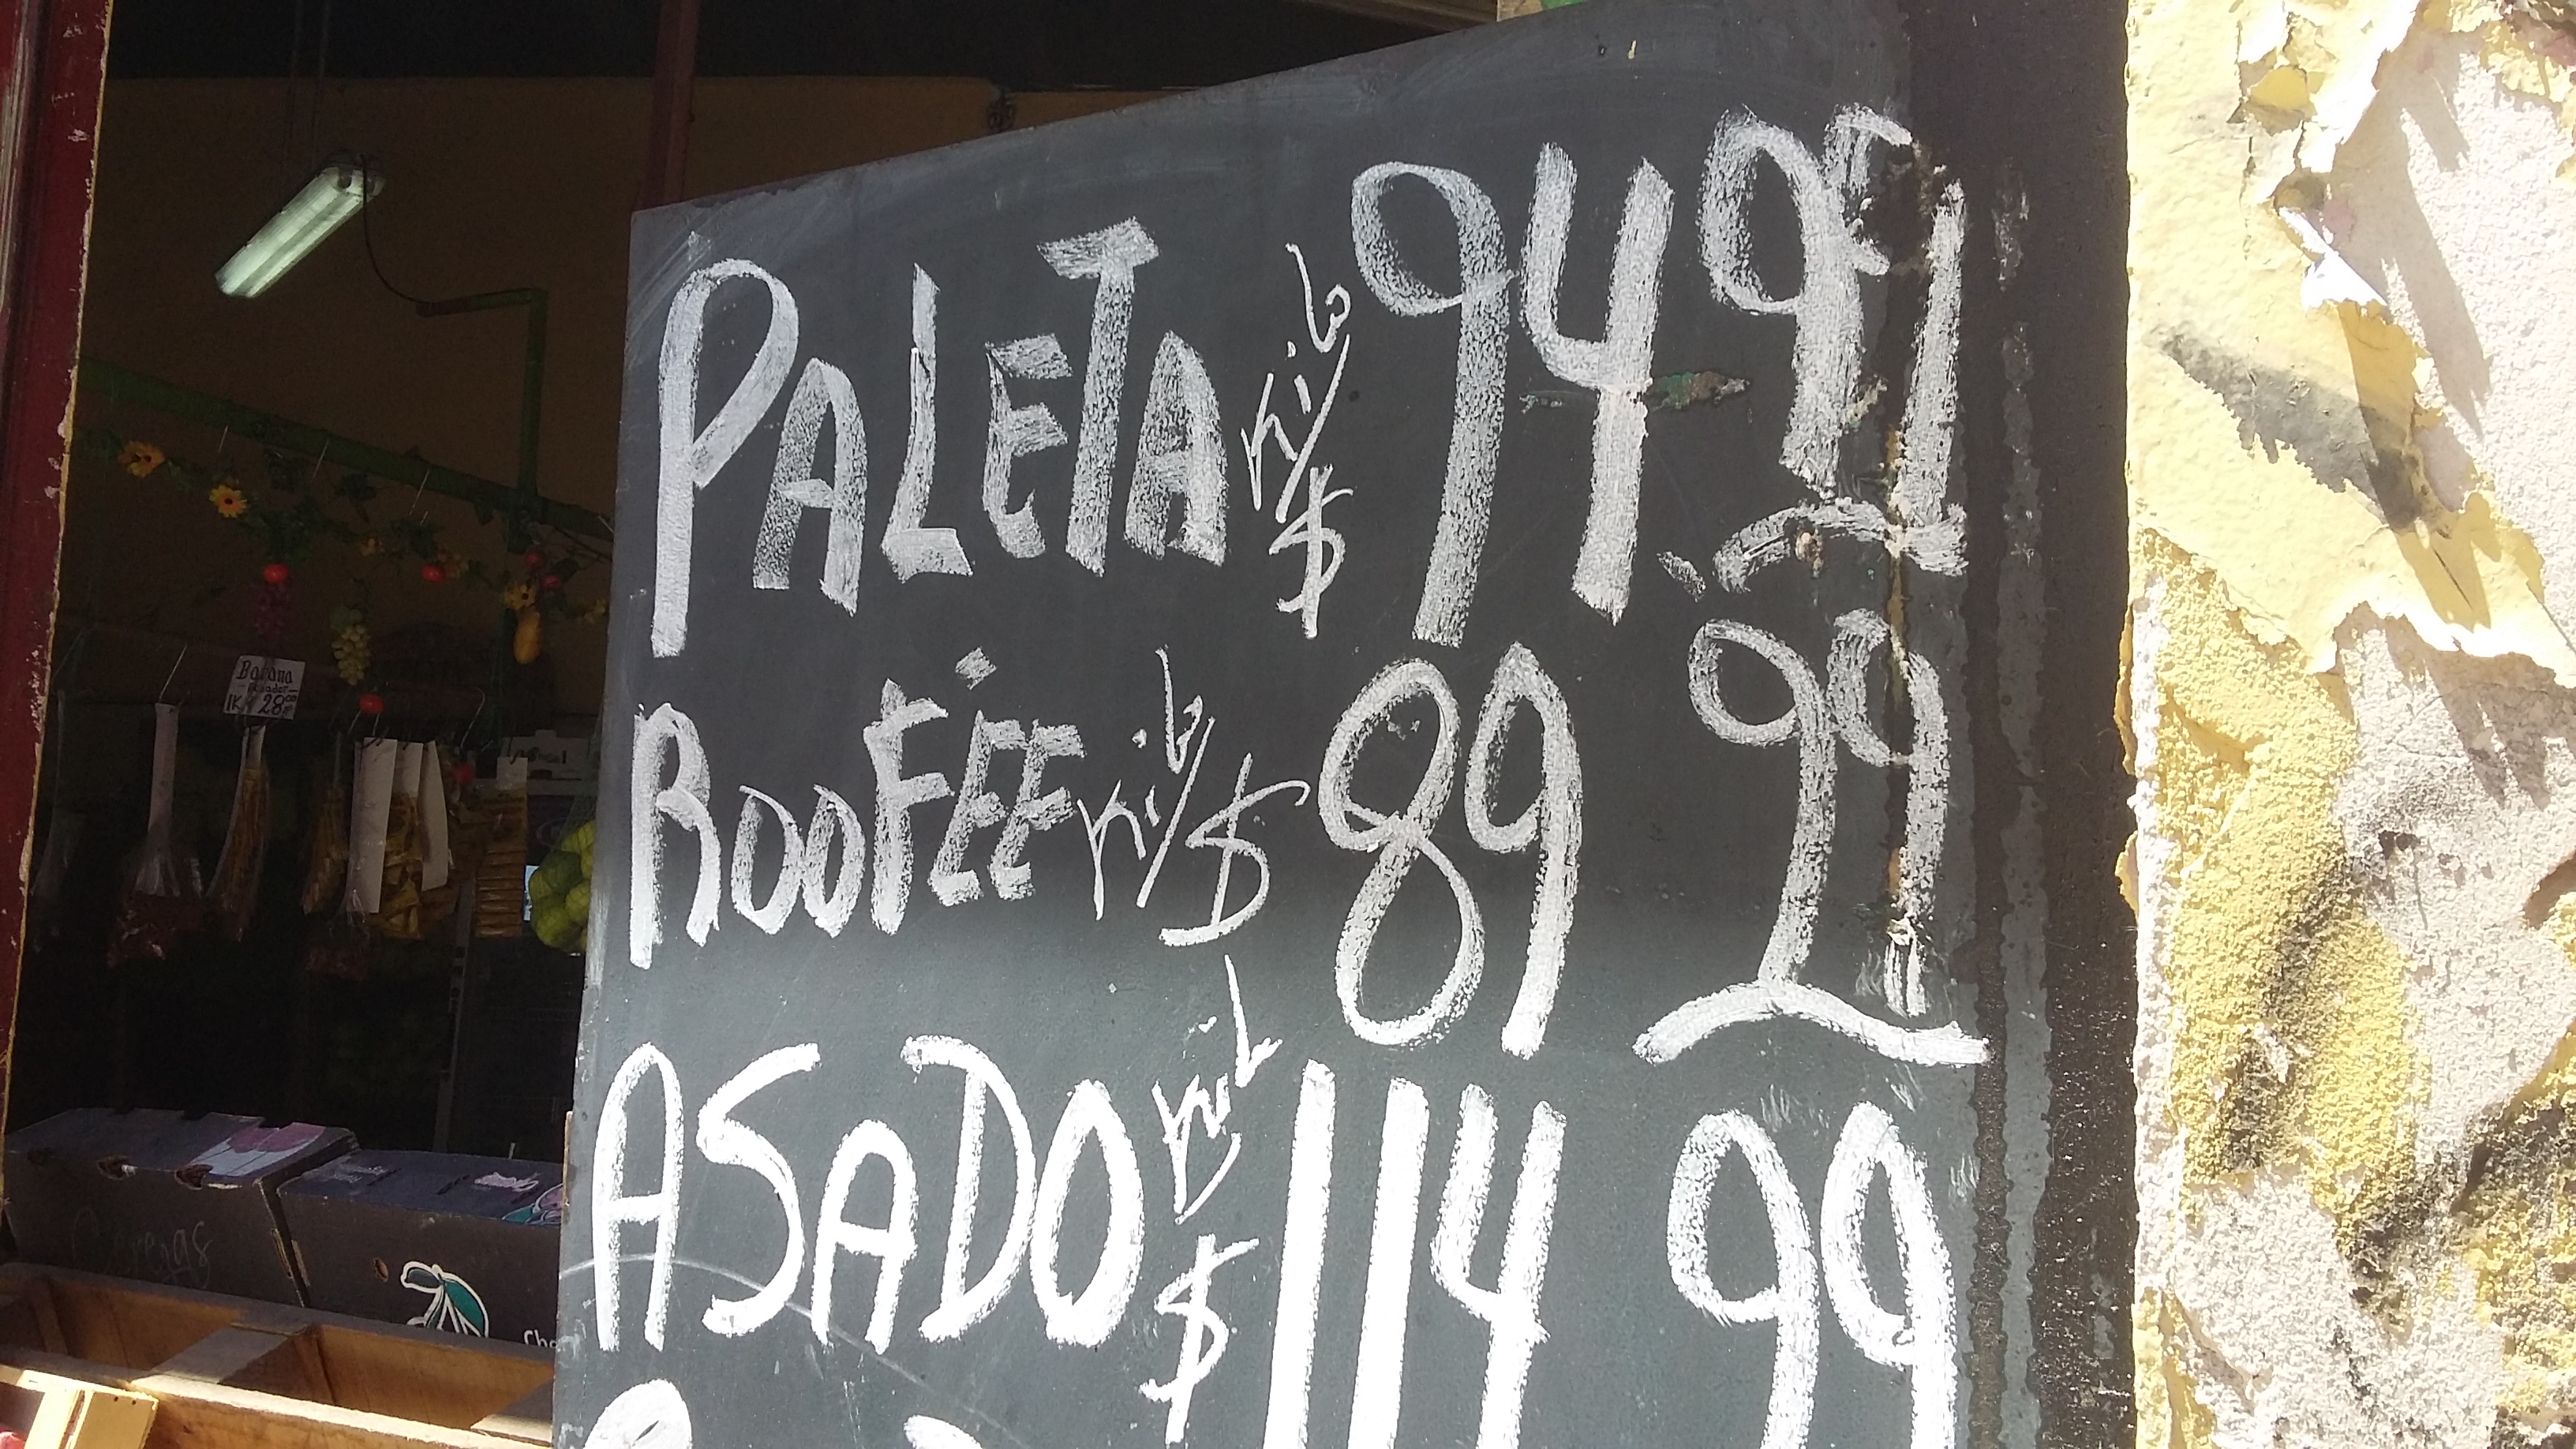 PALETA kilo $ 94.99
ROOFÉE kilo $ 89 99
ASADO kilo $ 114 99
Banana
Ecuador
1K $ 28
Cerezas